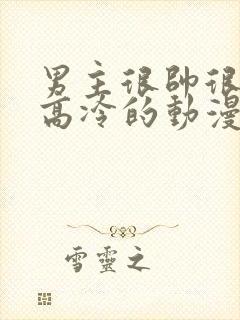 男主很帥很
高冷的動漫
雪靈之